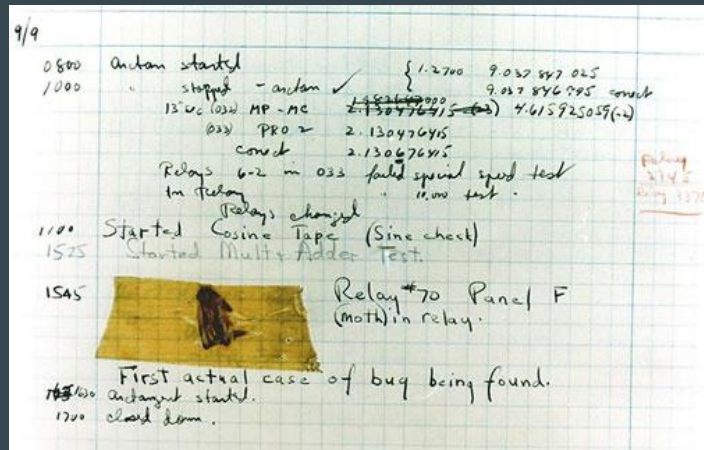 9/9
0800 antan started { 1.2700 9.037 847 025
1000 " stopped - antan ✓ { 9.037 846 995 correct
13"uc (032) MP - MC 2.130476415 (-3) 4.615925059(-2)
(033) PRO 2 2.130476415
correct 2.130676415
Relays 6-2 in 033 failed special speed test
In Relay " 10.000 test .
Relays changed
1100 Started Cosine Tape (Sine check)
1525 Started Mult + Adder Test.
1545 Relay #70 Panel F
(moth) in relay.
First actual case of bug being found.
1630 antangent started.
1700 closed down .
Relay